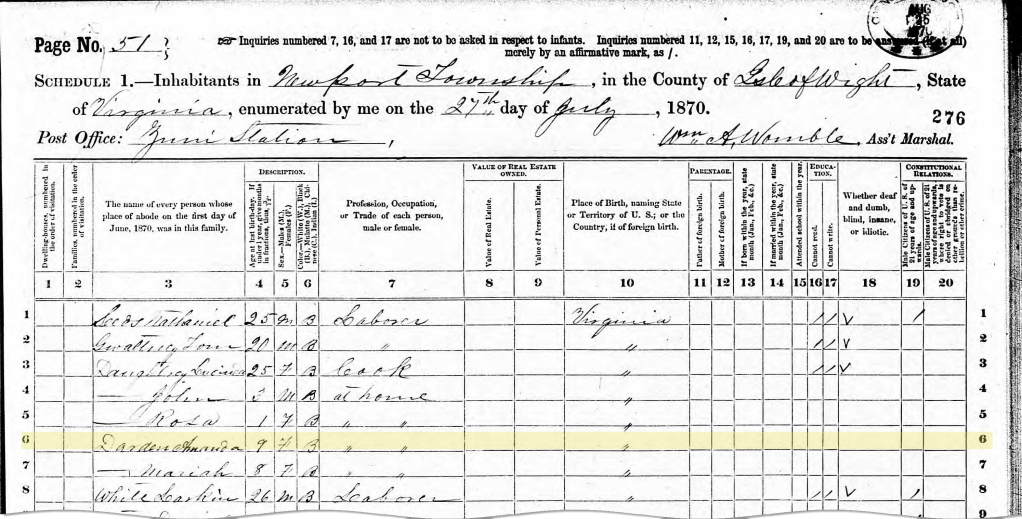 AUG
25
Page No. 51 } ☞ Inquiries numbered 7, 16, and 17 are not to be asked in respect to infants. Inquiries numbered 11, 12, 15, 16, 17, 19, and 20 are to be answered (if at all)
merely by an affirmative mark, as /.
SCHEDULE 1.—Inhabitants in Newport Township, in the County of Isle of Wight, State
of Virginia, enumerated by me on the 27th day of July, 1870.
276
Post Office: Zuni Station, Wm A. Womble, Ass't Marshal.
Dwelling-houses, numbered in the order of visitation.
Families, numbered in the order of visitation.
The name of every person whose place of abode on the first day of June, 1870, was in this family.
DESCRIPTION.
Age at last birth-day. If under 1 year, give months in fractions, thus,
Sex.—Males (M.), Females (F.)
Color.—White (W.), Black (B.), Mulatto (M.), Chinese (C.), Indian (I.)
Profession, Occupation, or Trade of each person, male or female.
VALUE OF REAL ESTATE OWNED.
Value of Real Estate.
Value of Personal Estate.
Place of Birth, naming State or Territory of U. S.; or the Country, if of foreign birth.
PARENTAGE.
Father of foreign birth.
Mother of foreign birth.
If born within the year, state month (Jan., Feb., &c.)
If married within the year, state month (Jan., Feb., &c.)
Attended school within the year.
EDUCATION.
Cannot read.
Cannot write.
Whether deaf and dumb, blind, insane, or idiotic.
CONSTITUTIONAL RELATIONS.
Male Citizens of U. S. of 21 years of age and upwards.
Male Citizens of U. S. of 21 years of age and upwards, where right to vote is denied or abridged on other grounds than rebellion or other crime.
1 2 3 4 5 6 7 8 9 10 11 12 13 14 15 16 17 18 19 20
1 Nathaniel 25 M B Laborer Virginia / / V / 1
2 Gwaltney Tom 20 M B " " / / V 2
3 Daughtrey Lucinda 25 F B Cook " / / V 3
4 — John 3 M B at home " 4
5 — Rosa 1 F B " " " 5
6 Darden Amanda 9 F B " " " 6
7 — Mariah 8 F B " " " 7
8 White Larkin 26 M B Laborer " / / V / 8
9